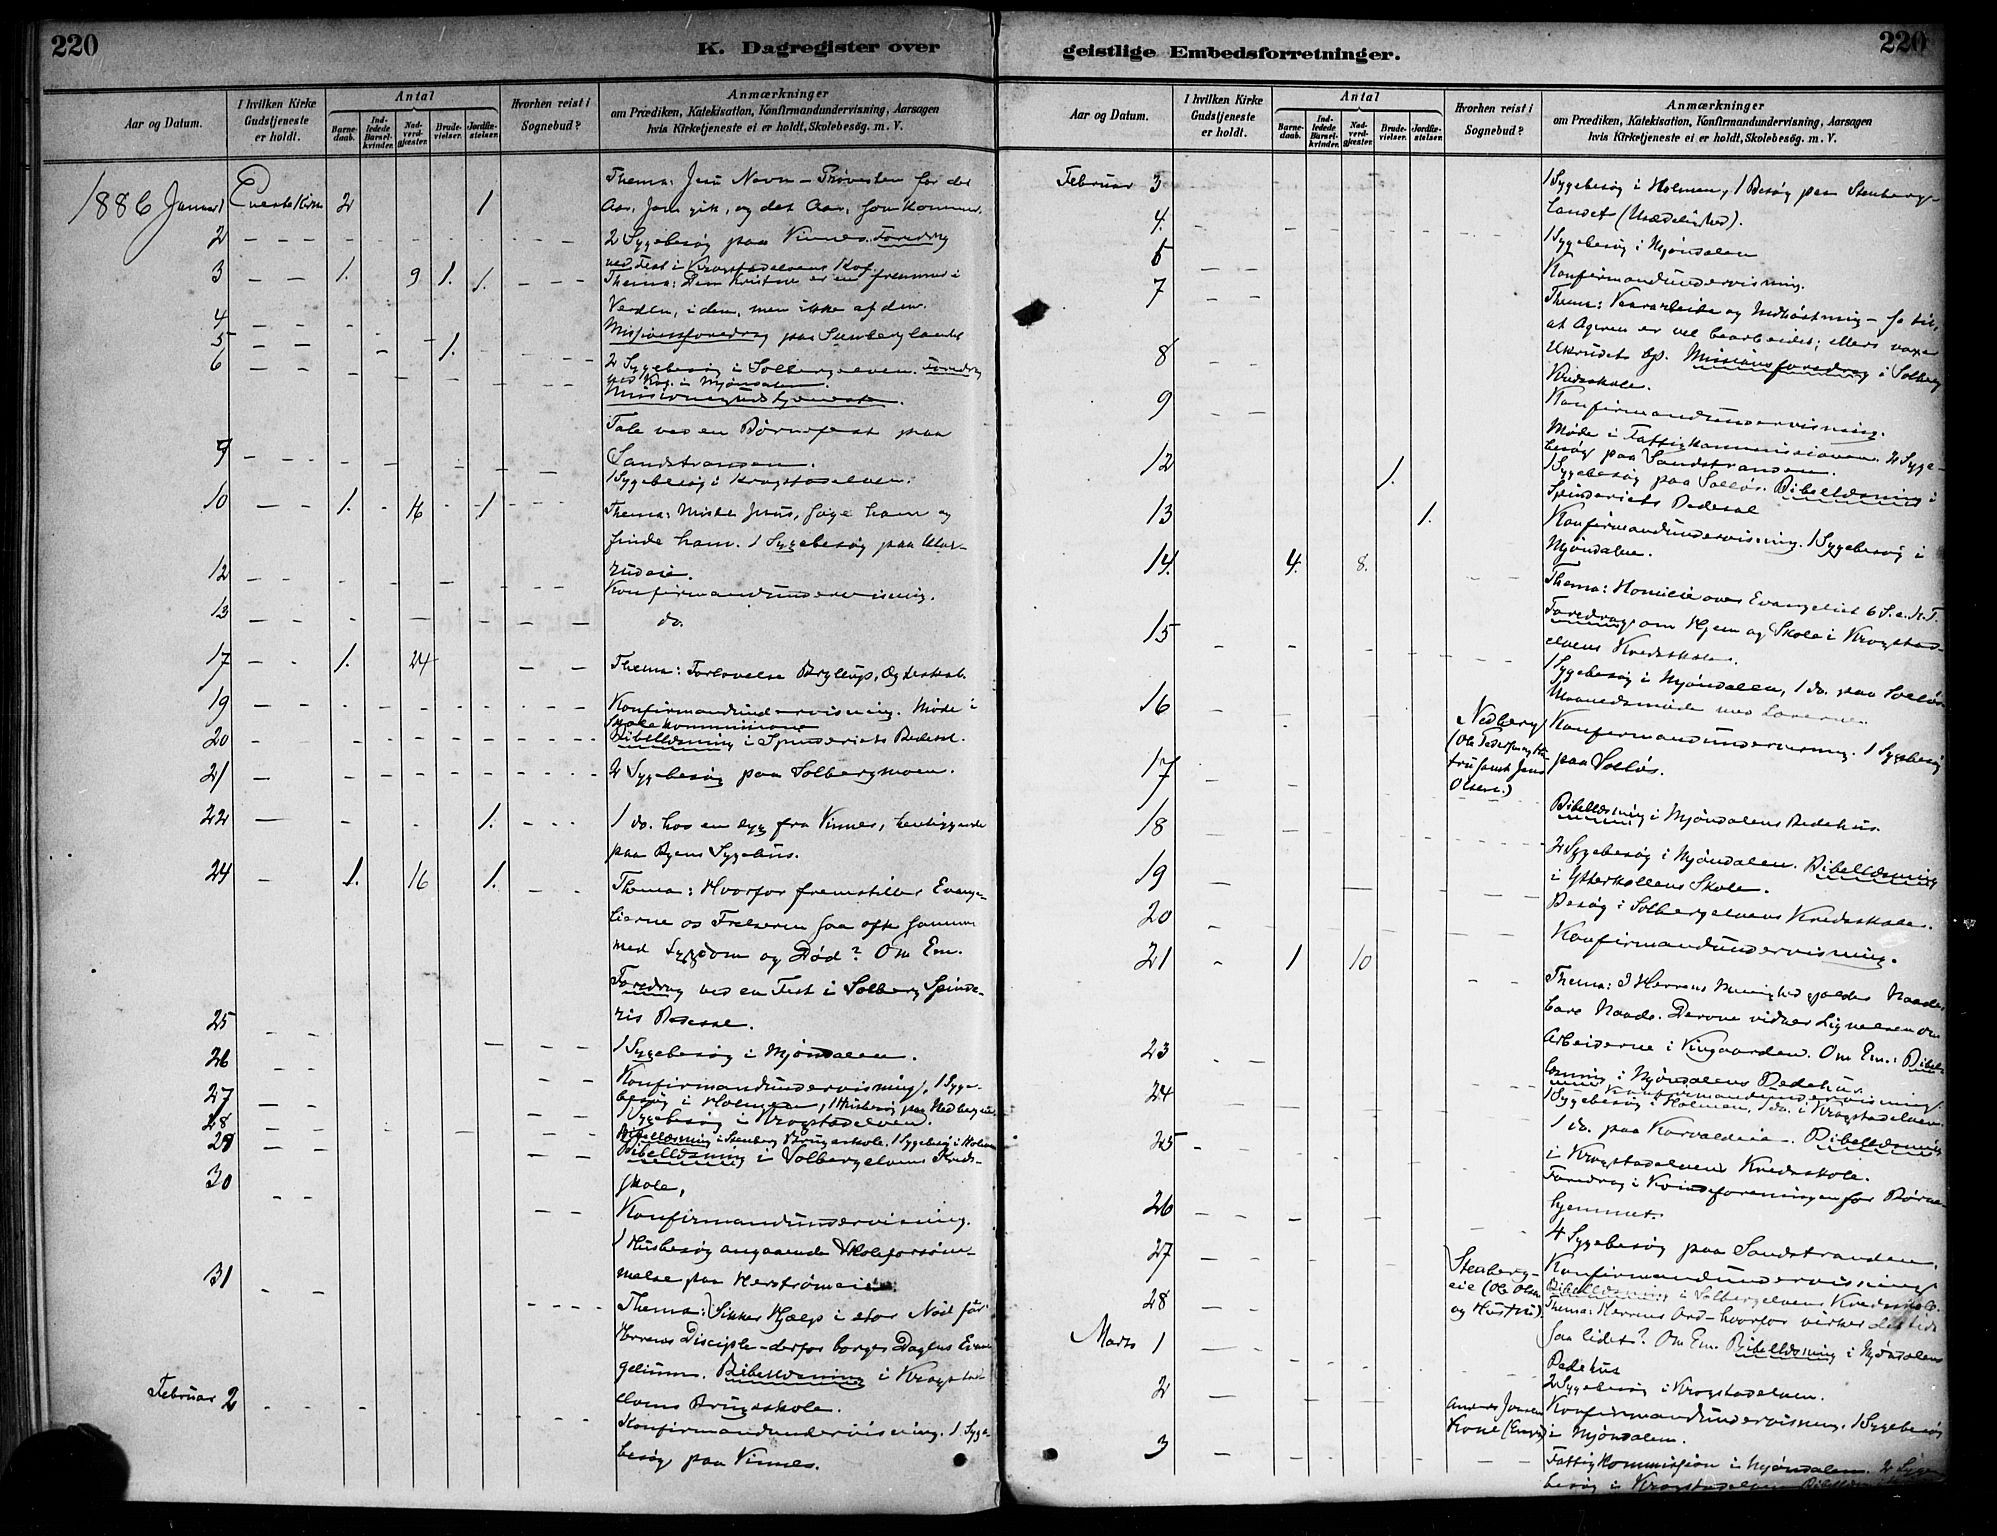 220
K. Dagregister over
Aar og Datum.
I hvilken Kirke
Gudstjeneste
er holdt.
Antal
Barne-
daab.
Ind-
ledede
Barsel-
kvinder.
Nad-
verd-
gjæster.
Brude-
vielser.
Jordfæ-
stelser.
Hvorhen reist i
Sognebud?
Anmærkninger
om Prædiken, Katekisation, Konfirmandundervisning, Aarsagen
hvis Kirketjeneste ei er holdt, Skolebesög. m. V.
1886 Januar 1 2 1
Thema: Jesu Navn – Prøvesten for det
Aar, som gik, og det Aar, som kommer.
2
2 Sygebesøg paa Vinnes. Foredrag
ved Fest i Krogstadelvens
3 1. 9 1. 1.
Thema: Den Kristne er en fremmed i
Verden, i den, men ikke af den.
4
Missionsforedrag paa
5 1.
6
2 Sygebesøg i Solbergelven. Foredrag
i Mjøndalen.
Tale ved en Børnefest paa
9
Sandstranden.
1 Sygebesøg i Krogstadelven.
10 1. 16 1
Thema: Miste Jesus, søge ham og
finde ham. 1 Sygebesøg paa
12
Konfirmandundervisning.
13
do.
17 1. 24
Thema: Forlovelse Bryllup, Egteskab.
19
Konfirmandundervisning. Møde i
Skolekommissionen
20
Bibellæsning i Spinderiets Bedesal.
21
2 Sygebesøg paa Solbergmoen.
22 1.
1 do. hos en syg fra Vinnes, henliggende
paa Byens Sygehus.
24 1. 16 1.
Thema: Hvorfor fremstiller Evange-
lierne os Frelseren saa ofte sammen
med Sygdom og Død? Om Em.
Foredrag ved en Fest i Solberg Spinde-
ris Bedesal.
25
1 Sygebesøg i Mjøndalen.
26
Konfirmandundervisning, 1 Syge-
besøg i Holmen, 1 Husbesøg paa Nedbergeie
27
1 Sygebesøg i Krogstadelven.
28
Bibellæsning i Stenberg Brugsskole. 1 Sygebesøg i Holmen
29
Bibellæsning i Solbergelvens Kreds-
skole,
30
Konfirmandundervisning.
1 Husbesøg angaaende Skoleforsøm-
melse paa Herstrømeie
31
Thema: Sikker Hjælp i stor Nød for
Herrens Disciple – derfor borger Dagens Evan-
gelium. Bibellæsning i Krogstad-
elvens Brugsskole.
Februar 2
Konfirmandundervisning. 1 Syge-
besøg paa Vinnes.
geistlige Embedsforretninger.
220
Aar og Datum.
I hvilken Kirke
Gudstjeneste
er holdt.
Antal
Barne-
daab.
Ind-
ledede
Barsel-
kvinder.
Nad-
verd-
gjæster.
Brude-
vielser.
Jordfæ-
stelser.
Hvorhen reist i
Sognebud?
Anmærkninger
om Prædiken, Katekisation, Konfirmandundervisning, Aarsagen
hvis Kirketjeneste ei er holdt, Skolebesög. m. V.
Februar 3
1 Sygebesøg i Holmen, 1 Besøg paa Stenberg-
landet (Usædelighed).
4.
1 Sygebesøg i Mjøndalen
5
Konfirmandundervisning.
7
Thema: Vaararbeide og Indhøstning – se til,
at Ageren er vel bearbeidet; ellers voxer
Ukrudtet op. Missionsforedrag i Solberg
Kredsskole.
8
Konfirmandundervisning.
9
Møde i Fattigkommissionen. 2 Syge-
besøg paa Sandstranden.
12 1.
1 Sygebesøg paa Solløs. Bibellæsning i
Spinderiets Bedesal
13 1.
Konfirmandundervisning. 1 Sygebesøg i
Mjøndalen.
14. 4. 8.
Thema: Homilie over Evangeliet 6 S. e. H. 3 K.
Foredrag om Hjem og Skole i Krogstad-
elvens Kredsskole.
15
1 Sygebesøg i Mjøndalen, 1 do. paa Solløs
Maanedsmøde med Lærerne.
16
Nedberg
Konfirmandundervisning. 1 Sygebesøg
paa Solløs.
17
Olsen.)
18
Bibellæsning i Mjøndalens Bedehus.
19
2 Sygebesøg i Mjøndalen. Bibellæsning
i Ytterkollens Skole.
20
Besøg i Solbergelvens Kredsskole.
Konfirmandundervisning.
21 1 10
Thema: I Herrens Menighed gjælder Naade,
bare Naade. Derom vidner Lignelsen om
Arbeiderne i Vingaarden. Om Em.: Bibel-
læsning i Mjøndalens Bedehus
23
Konfirmandundervisning
24
1 Sygebesøg i Holmen, 1 do. i Krogstadelven.
25
1 do. paa Bibellæsning
i Krogstadelvens Kredsskole.
26
Foredrag i Kvindeforeningen for Børne-
hjemmet.
27
4 Sygebesøg paa Sandstranden.
Stenberg-
eie (Ole Olsen
og Hustru).
Konfirmandundervisning
28
Bibellæsning i Solbergelvens Kredsskole.
Thema: Herrens Ord – hvorfor virker det tidt
saa lidet? Om Em. Bibellæsning i Mjøndalens
Bedehus
Marts 1
2 Sygebesøg i Krogstadelven.
2
Anders Jensens
Kone
Konfirmandundervisning. 1 Sygebesøg
i Mjøndalen.
3
Fattigkommission i Mjøndalen. 2 Syge-
besøg i Krogstadelven